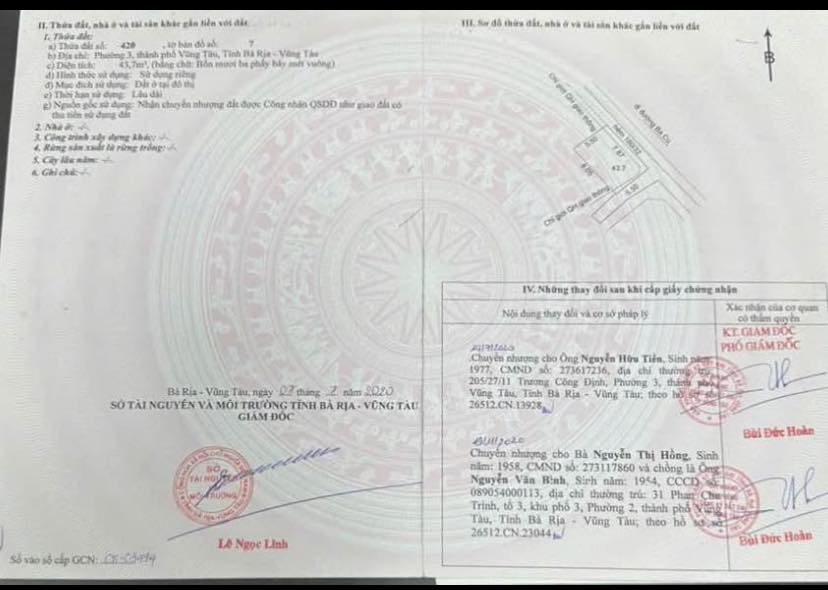 II. Thửa đất, nhà ở và tài sản khác gắn liền với đất
1. Thửa đất:
a) Thửa đất số: 420 , tờ bản đồ số: 7
b) Địa chỉ: Phường 3, thành phố Vũng Tàu, Tỉnh Bà Rịa - Vũng Tàu
c) Diện tích: 43,7m², (bằng chữ: Bốn mươi ba phẩy bảy mét vuông)
d) Hình thức sử dụng: Sử dụng riêng
đ) Mục đích sử dụng: Đất ở tại đô thị
e) Thời hạn sử dụng: Lâu dài
g) Nguồn gốc sử dụng: Nhận chuyển nhượng đất được Công nhận QSDĐ như giao đất có
thu tiền sử dụng đất
2. Nhà ở: -/-
3. Công trình xây dựng khác: -/-
4. Rừng sản xuất là rừng trồng: -/-
5. Cây lâu năm: -/-
6. Ghi chú: -/-
Bà Rịa - Vũng Tàu, ngày 07 tháng 2 năm 2020
SỞ TÀI NGUYÊN VÀ MÔI TRƯỜNG TỈNH BÀ RỊA - VŨNG TÀU
GIÁM ĐỐC
SỞ
TÀI NGUYÊN
MÔI TRƯỜNG
Lê Ngọc Linh
Số vào sổ cấp GCN:
III. Sơ đồ thửa đất, nhà ở và tài sản khác gắn liền với đất
B
Chỉ giới QH giao thông
đi đường Ba Cu
Hẻm
5.50
7.87
43.7
5.50
Chỉ giới QH giao thông
IV. Những thay đổi sau khi cấp giấy chứng nhận
Nội dung thay đổi và cơ sở pháp lý
Xác nhận của cơ quan
có thẩm quyền
KT. GIÁM ĐỐC
PHÓ GIÁM ĐỐC
Chuyển nhượng cho Ông Nguyễn Hữu Tiến, Sinh năm:
1977, CMND số: 273617236, địa chỉ thường trú:
205/27/11 Trương Công Định, Phường 3, thành phố
Vũng Tàu, Tỉnh Bà Rịa - Vũng Tàu; theo hồ sơ số
26512.CN.13928
Bùi Đức Hoàn
Chuyển nhượng cho Bà Nguyễn Thị Hồng, Sinh
năm: 1958, CMND số: 273117860 và chồng là Ông
Nguyễn Văn Bình, Sinh năm: 1954, CCCD số:
089054000113, địa chỉ thường trú: 31 Phan Chu
Trinh, tổ 3, khu phố 3, Phường 2, thành phố Vũng
Tàu, Tỉnh Bà Rịa - Vũng Tàu; theo hồ sơ số
26512.CN.23044
Bùi Đức Hoàn